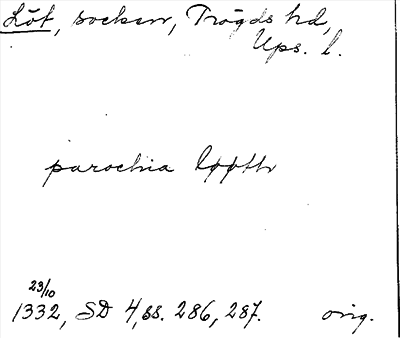 Löt, socken, Trögds hd,
Ups. l.
parochia Løøth
23/10
1332, SD 4, ss. 286, 287. orig.